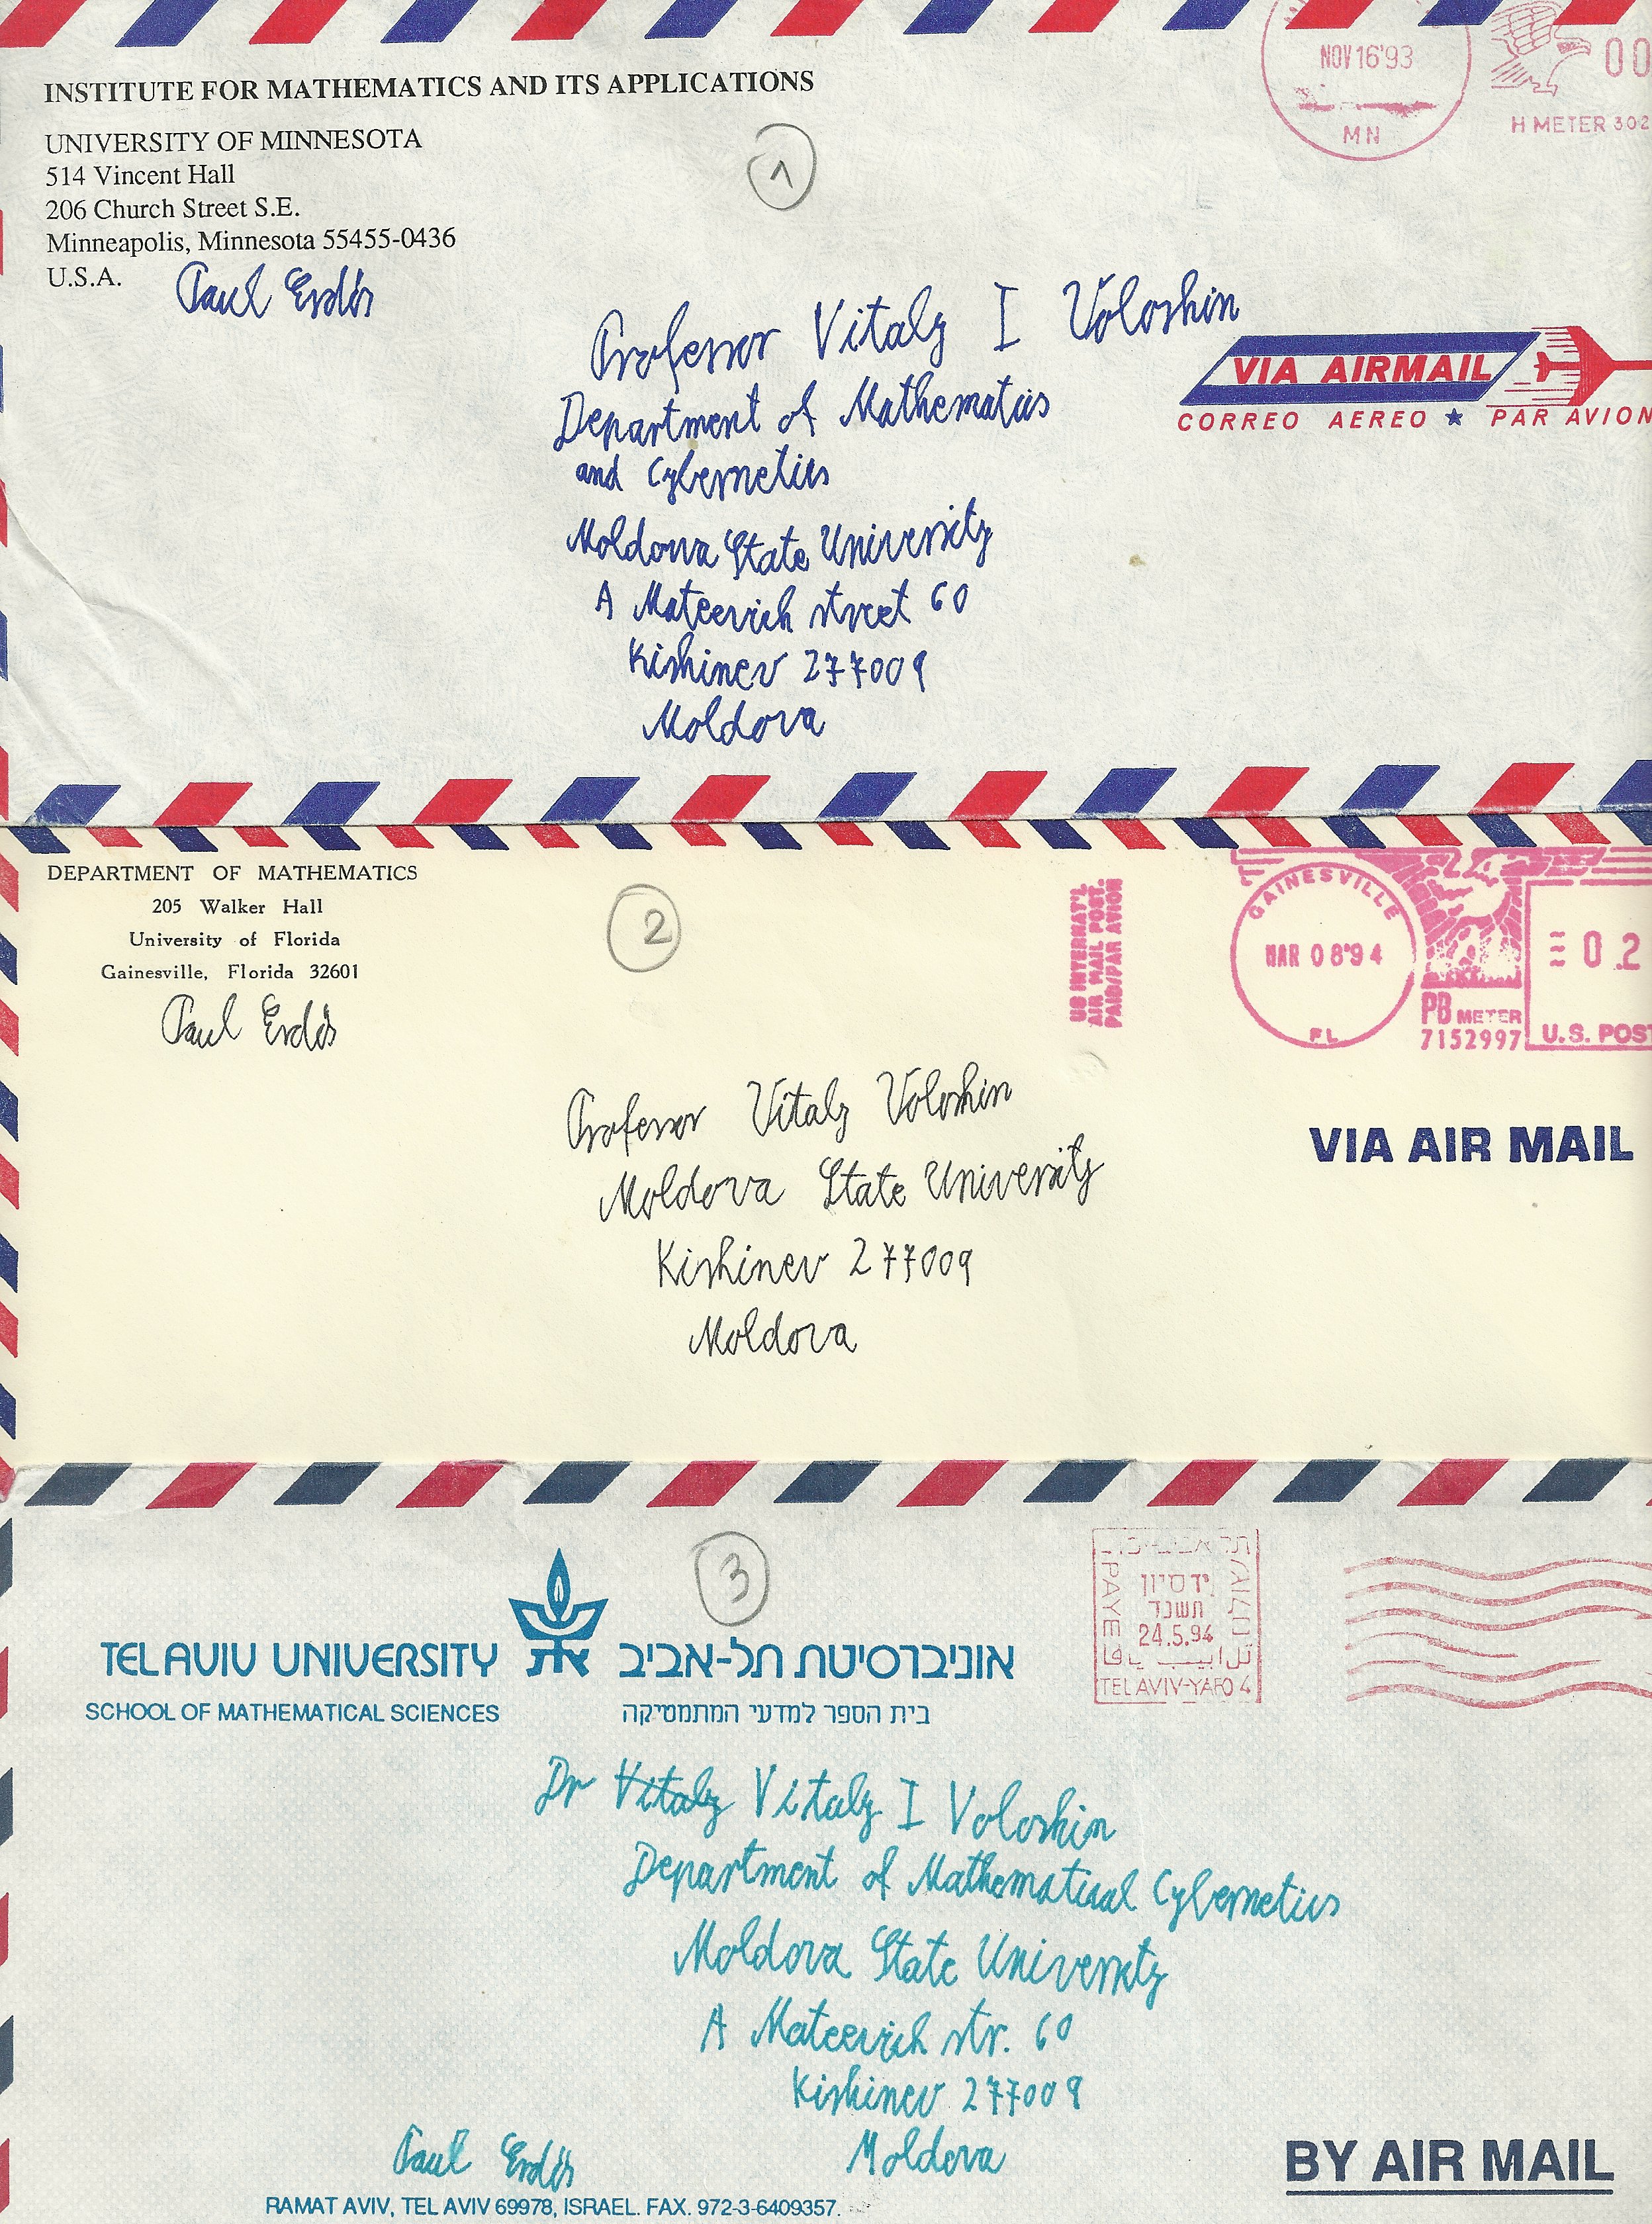 NOV 16'93
MN
00
H METER 302
INSTITUTE FOR MATHEMATICS AND ITS APPLICATIONS
UNIVERSITY OF MINNESOTA
514 Vincent Hall
206 Church Street S.E.
Minneapolis, Minnesota 55455-0436
U.S.A.
Paul Erdős
1
Professor Vitaly I Voloshin
Department of Mathematics
and Cybernetics
Moldova State University
A Mateevich street 60
Kishinev 277009
Moldova
VIA AIRMAIL
CORREO AEREO ★ PAR AVION
DEPARTMENT OF MATHEMATICS
205 Walker Hall
University of Florida
Gainesville, Florida 32601
Paul Erdős
2
US INTERNAT'L
AIR MAIL POST.
PAID/PAR AVION
GAINESVILLE
MAR 08'94
FL
PB METER
7152997
0.2
U.S. POST
Professor Vitaly Voloshin
Moldova State University
Kishinev 277009
Moldova
VIA AIR MAIL
3
TEL AVIV UNIVERSITY אוניברסיטת תל-אביב
SCHOOL OF MATHEMATICAL SCIENCES בית הספר למדעי המתמטיקה
יד סיון
תשנד
24.5.94
PAYE
TEL AVIV-YAFO 4
Dr Vitaly Vitaly I Voloshin
Department of Mathematical Cybernetics
Moldova State University
A Mateevich str. 60
Kishinev 277009
Moldova
Paul Erdős
BY AIR MAIL
RAMAT AVIV, TEL AVIV 69978, ISRAEL. FAX. 972-3-6409357.